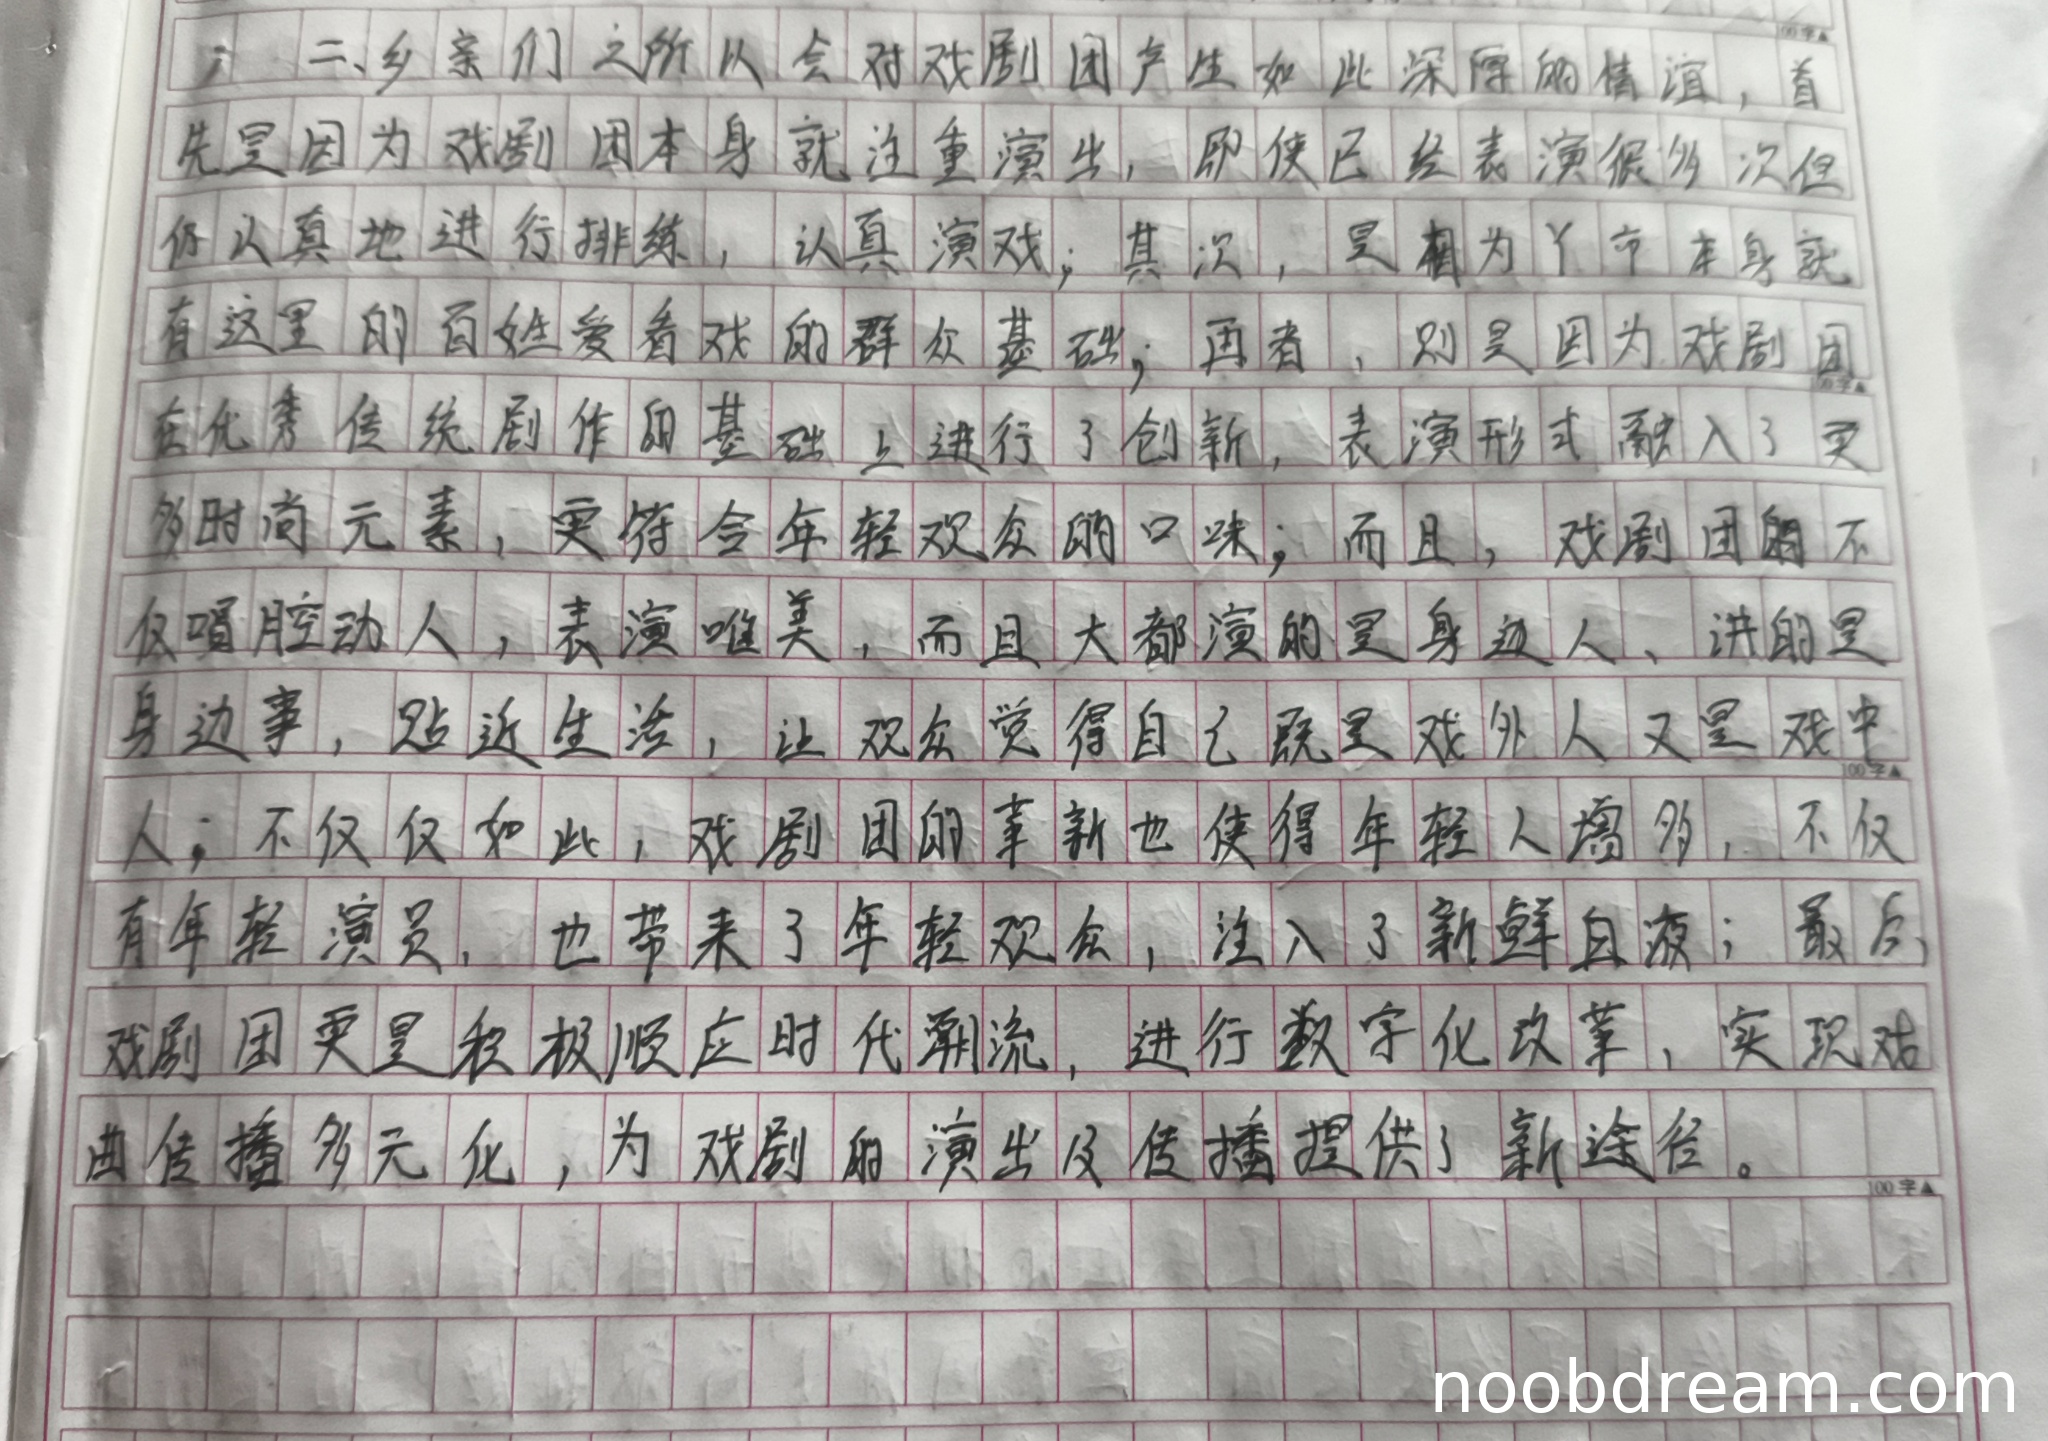 二、乡亲们之所以会对戏剧团产生如此深厚的情谊，首
先是因为戏剧团本身就注重演出，即使已经表演很多次但
仍认真地进行排练，认真演戏；其次，是因为丫市本身就
有这里的百姓爱看戏的群众基础；再者，则是因为戏剧团
在优秀传统剧作的基础上进行了创新，表演形式融入了更
多时尚元素，更符合年轻观众的口味；而且，戏剧团的不
仅唱腔动人，表演唯美，而且大都演的是身边人、讲的是
身边事，贴近生活，让观众觉得自己既是戏外人又是戏中
人；不仅仅如此，戏剧团的革新也使得年轻人增多，不仅
有年轻演员，也带来了年轻观众，注入了新鲜血液；最后，
戏剧团更是积极顺应时代潮流，进行数字化改革，实现戏
曲传播多元化，为戏剧的演出及传播提供了新途径。
100字▲
100字▲
100字▲
100字▲
noobdream.com